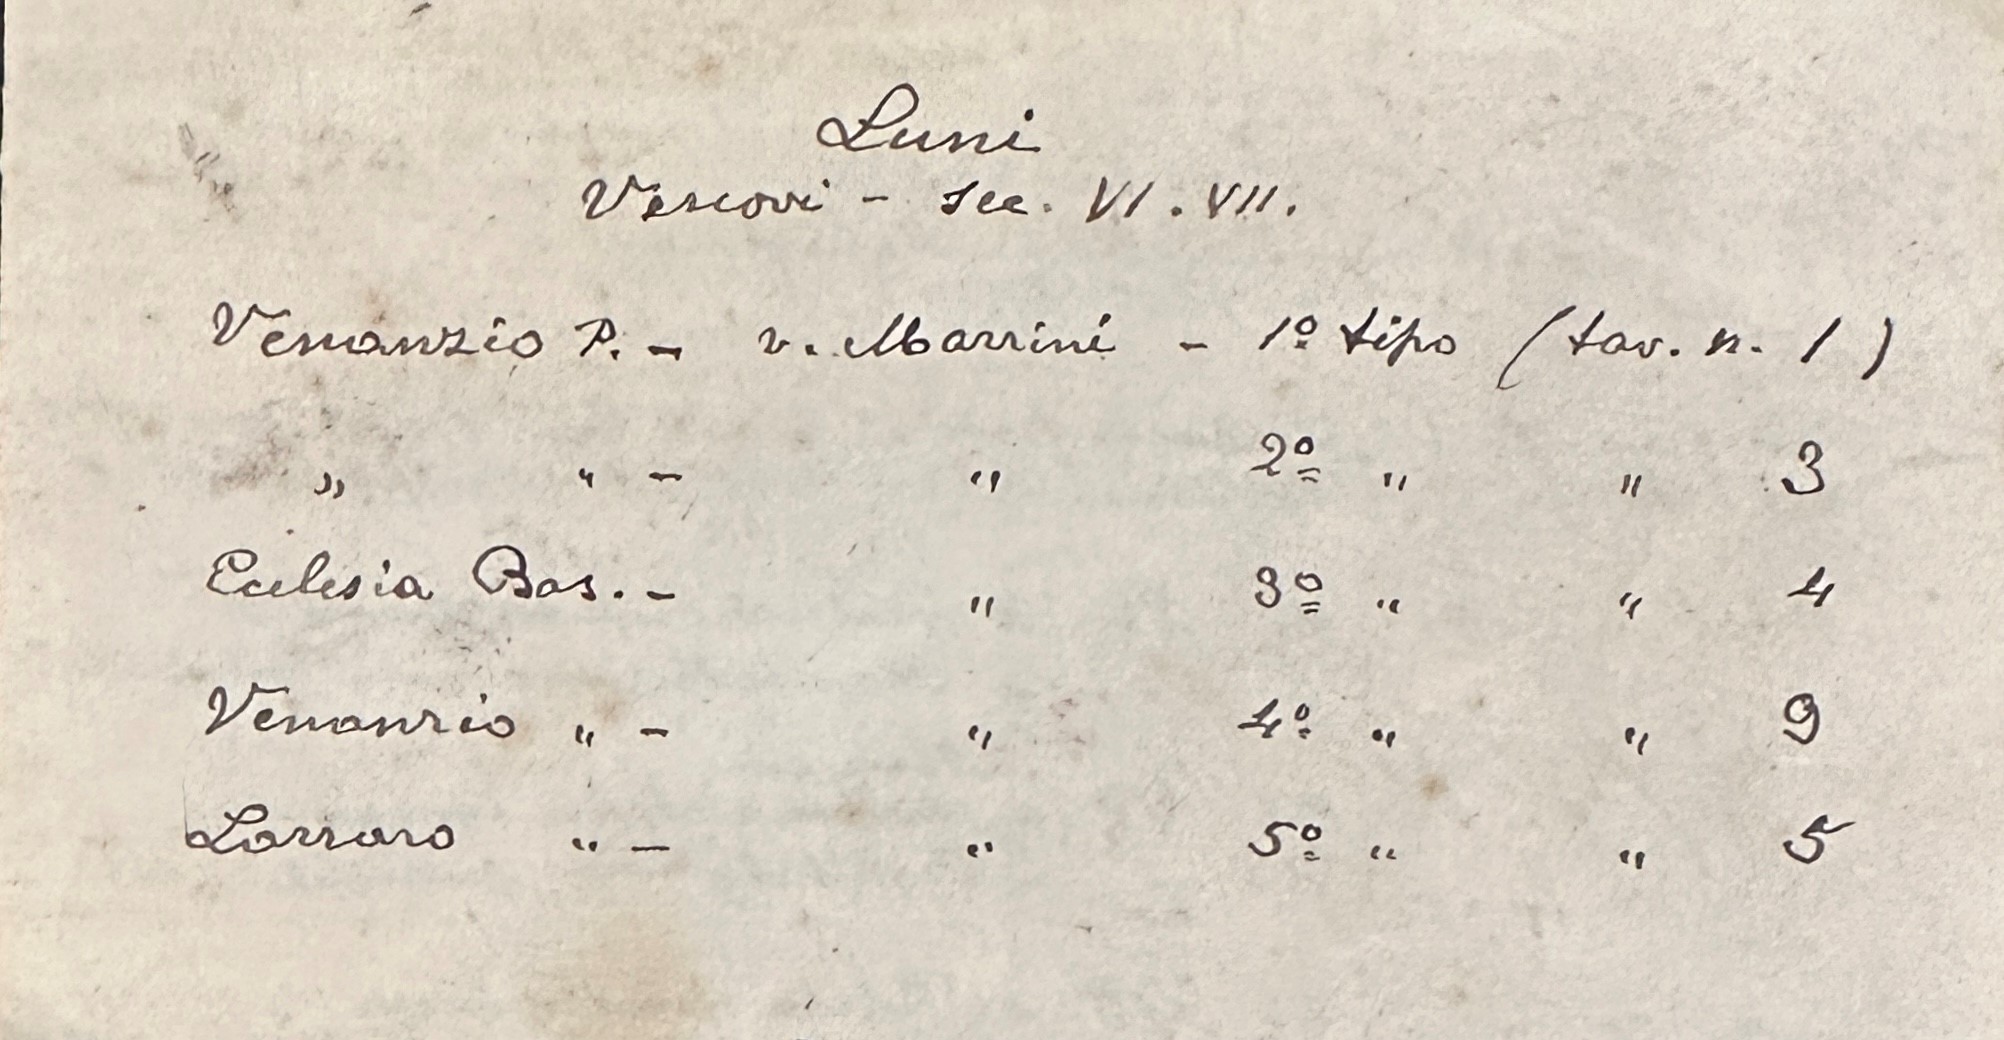 Luni
Vescovi - sec. VI. VII.
Venanzio P. - v. Massini - 1º tipo (tav. n. 1)
„ " - " 2º " " 3
Ecclesia Bas. - " 3º " " 4
Venanzio " - " 4º " " 9
Lazzaro " - " 5º " " 5